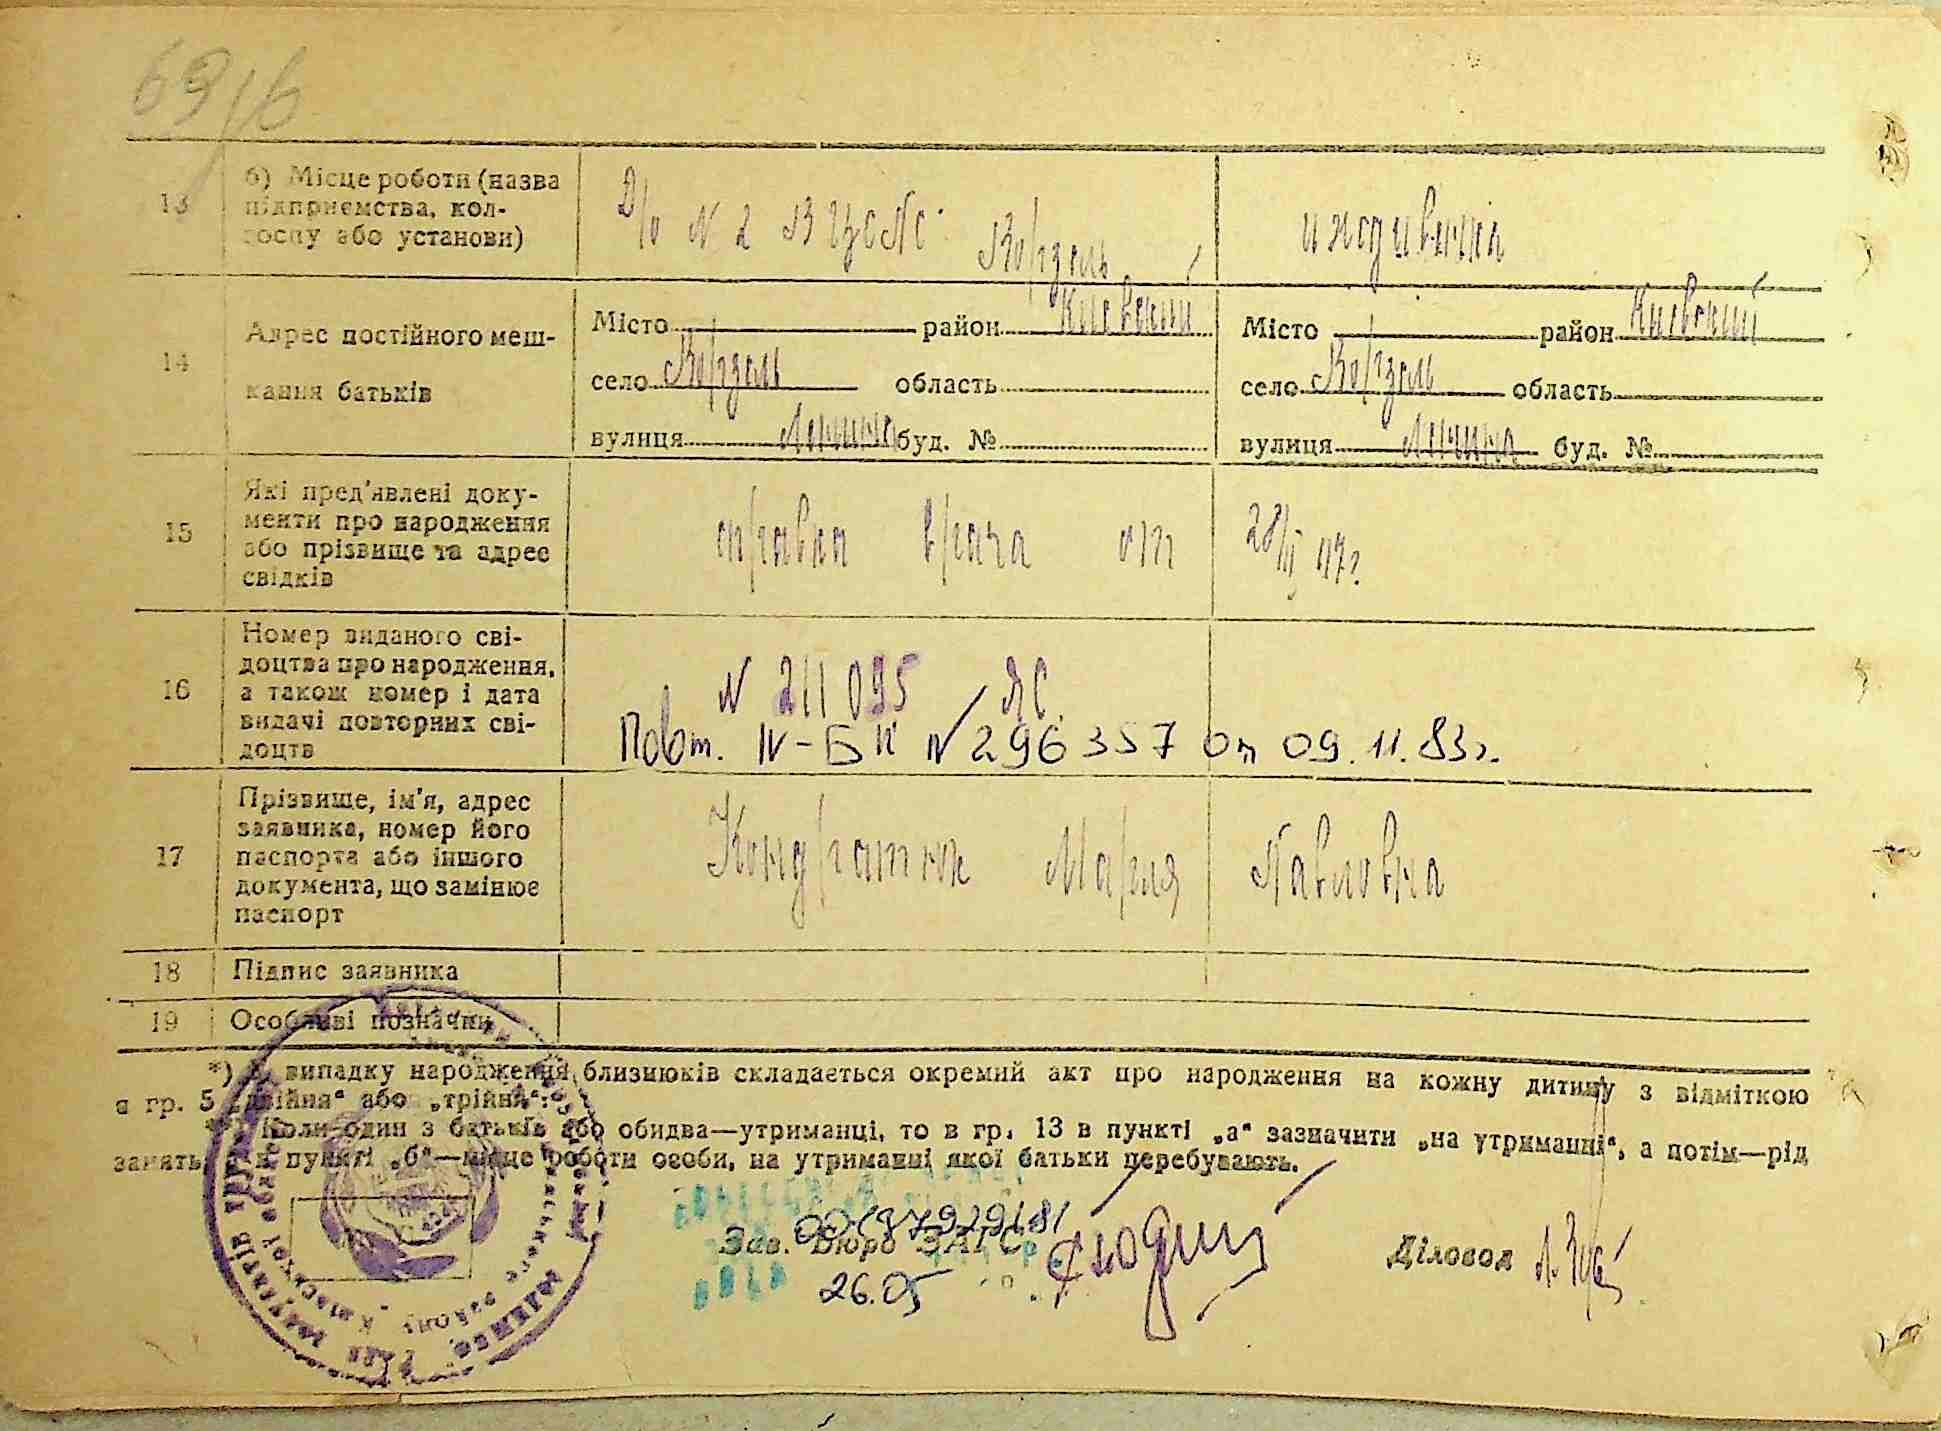 69/6
13
б) Місце роботи (назва підприємства, колгоспу або установи)
Д/о N 2 ВЦСПС Ворзель
иждивенка
14
Адрес постійного мешкання батьків
Місто район Киевский
село Ворзель область
вулиця Ленина буд. №
Місто район Киевский
село Ворзель область
вулиця Ленина буд. №
15
Які пред'явлені документи про народження або прізвище та адрес свідків
справка врача от 28/ 47г
16
Номер виданого свідоцтва про народження, а також номер і дата видачі повторних свідоцтв
N 211095 ЯС
Повт. IV-БК N 296357 от 09.11.83г.
17
Прізвище, ім'я, адрес заявника, номер його паспорта або іншого документа, що замінює паспорт
Кондратюк Мария Павловна
18
Підпис заявника
19
Особливі позначки
*) В випадку народження близнюків складається окремий акт про народження на кожну дитину з відміткою
в гр. 5 „двійня“ або „трійня“.
Коли один з батьків або обидва—утриманці, то в гр. 13 в пункті „а“ зазначити „на утриманні“, а потім—рід
занять, в пункті „б“—місце роботи особи, на утриманні якої батьки перебувають.
Зав. Бюро ЗАГС
26.05
Діловод